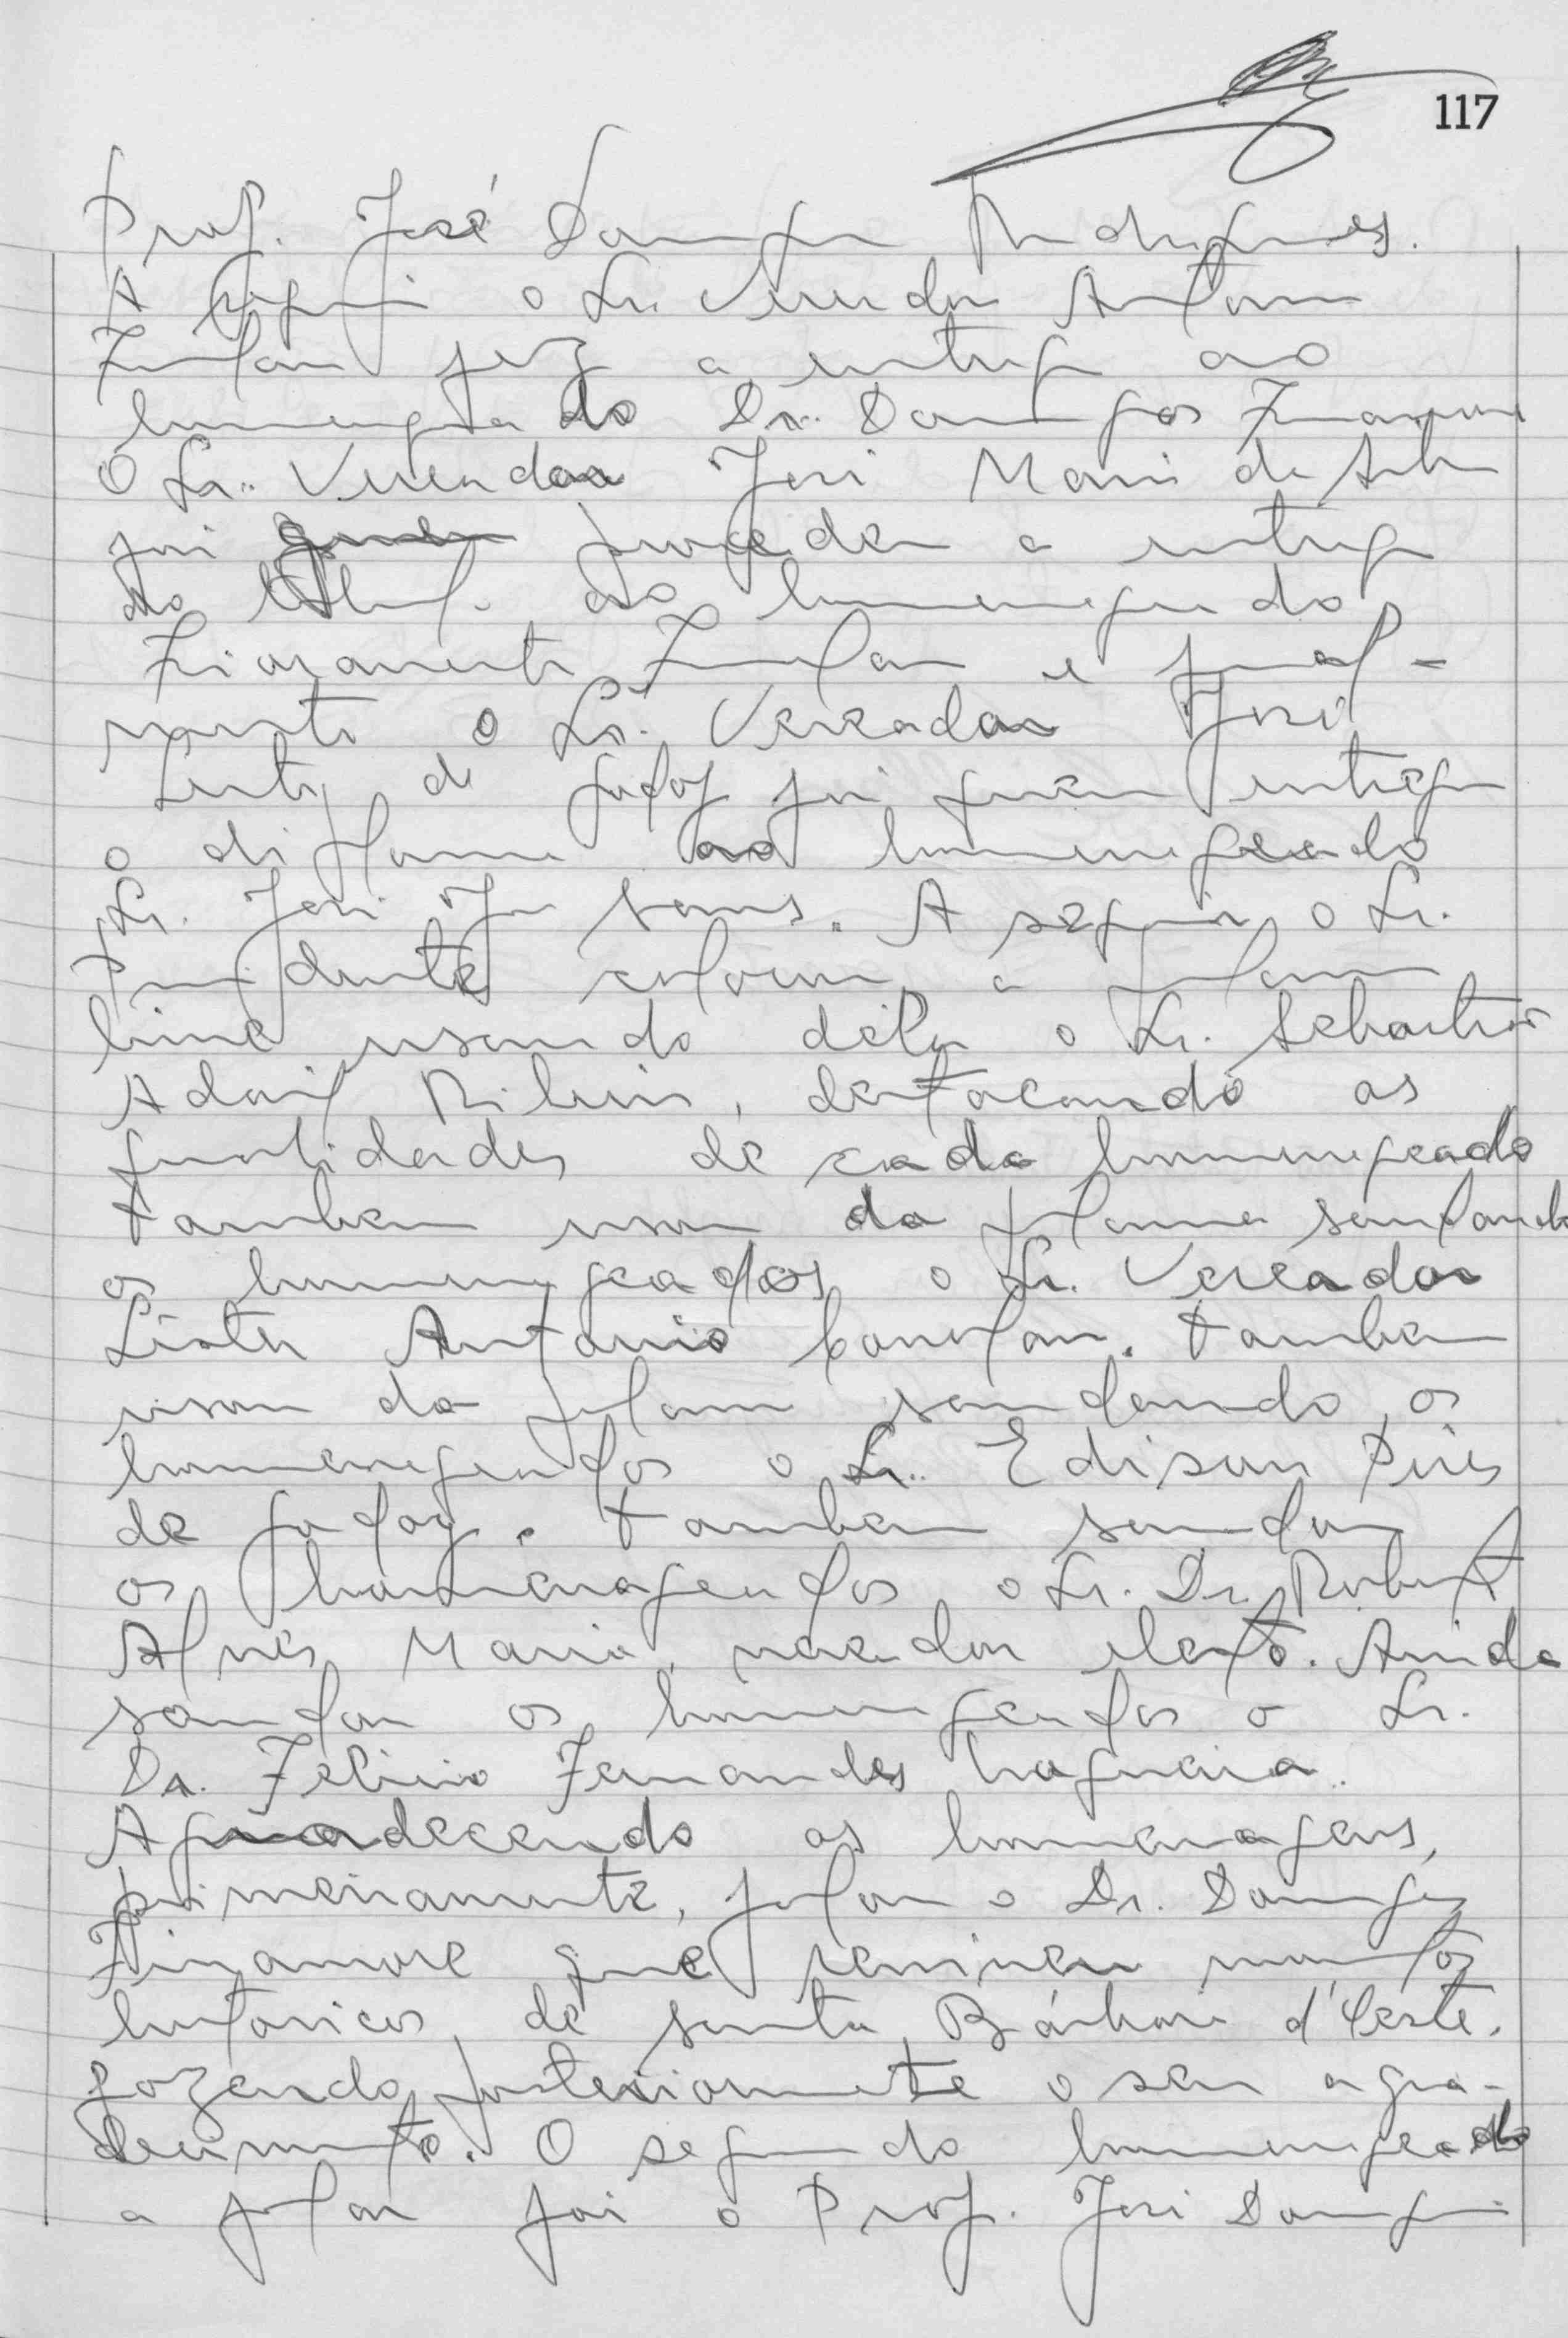 117
Prof. José Domingos Rodrigues.
A seguir o Sr. Vereador Antonio
fez a entrega ao
homenageado Dr. Domingos Finamore
O Sr. Vereador José Maria de
foi quem procedeu a entrega
do título ao homenageado
e final-
mente o Sr. Vereador José
de Godoy foi quem entregou
o diploma ao homenageado
Sr. José. A seguir o Sr.
Presidente colocou a palavra
livre usando dela o Sr. Sebastião
Adail Ribeiro, destacando as
qualidades de cada homenageado
tambem usou da palavra saudando
os homenageados o Sr. Vereador
Antonio. tambem
usou da palavra saudando os
homenageados o Sr. Edison Pires
de Godoy. tambem saudou
os homenageados o Sr. Dr. Robert
Maria, vereador eleito. Ainda
saudou os homenageados o Sr.
Dr. Felicio Fernandes Nogueira.
Agradecendo as homenagens,
primeiramente, falou o Dr. Domingos
Finamore que
historicos de Santa Bárbara d'Oeste.
fazendo posteriormente o seu agra-
decimento. O segundo homenageado
a falar foi o Prof. José Domingos